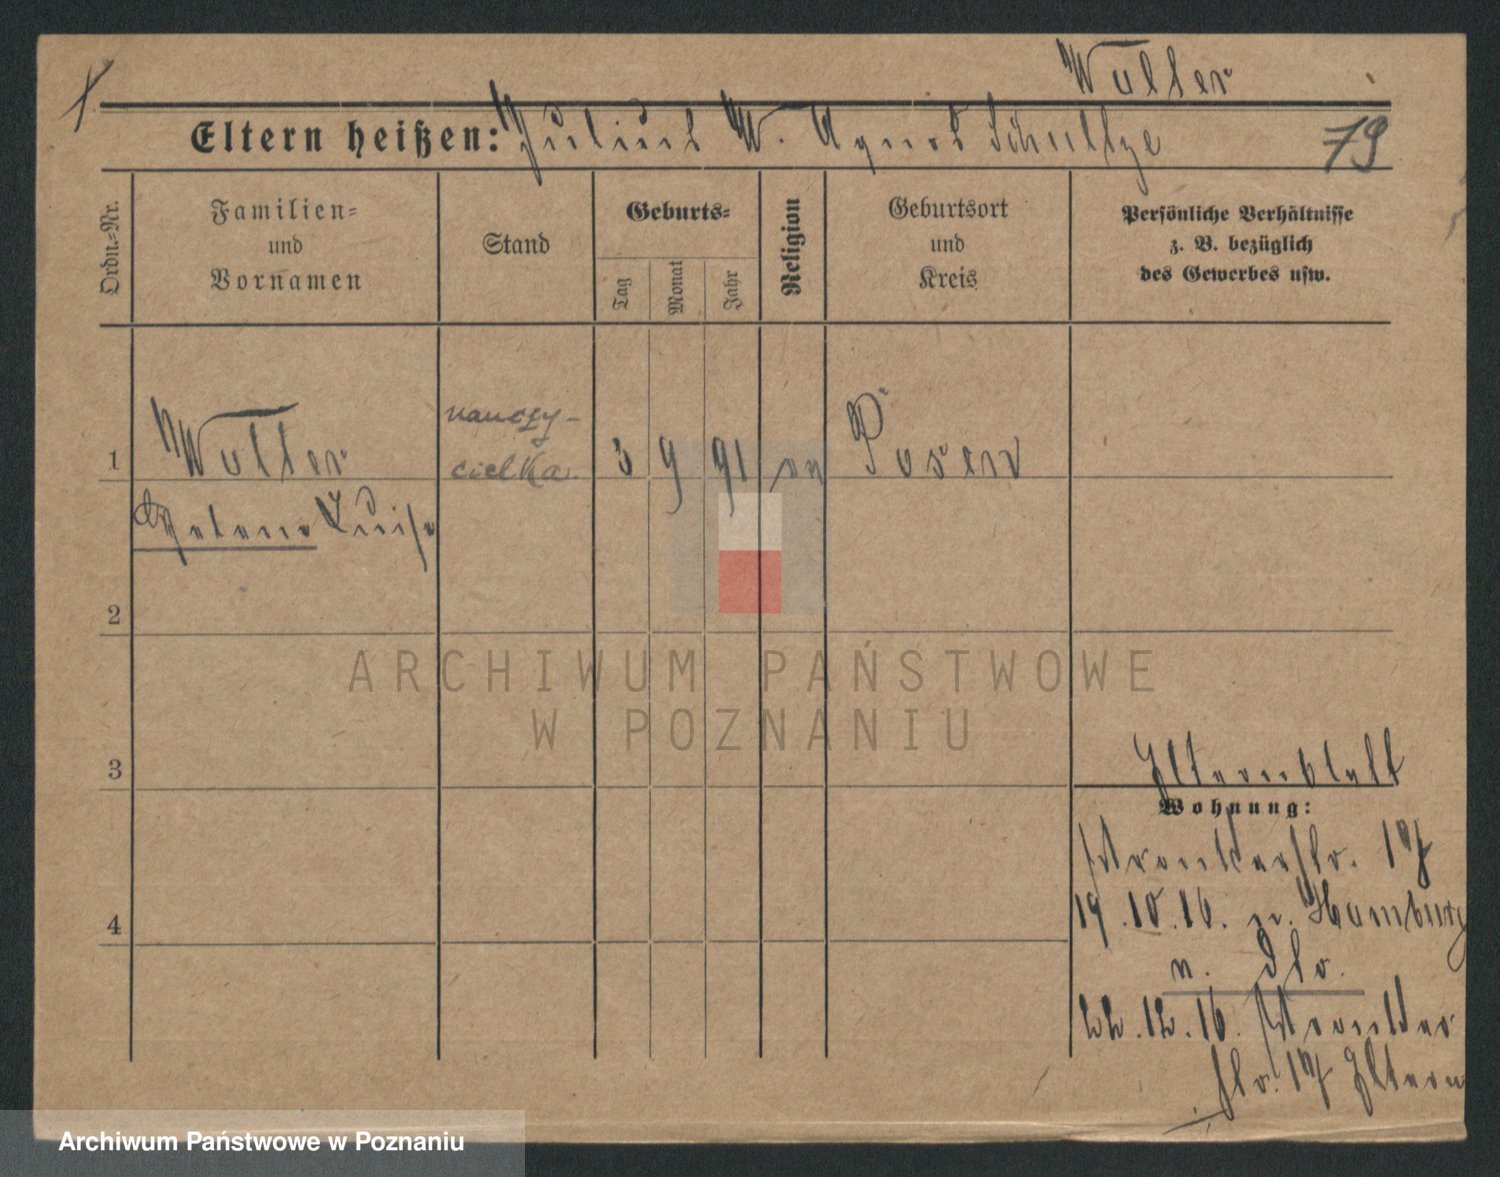 Wolter
Eltern heißen: Julius W. Agnes Schultze
79
Ordn.=Nr.
Familien=
und
Vornamen
Stand
Geburts=
Tag
Monat
Jahr
Religion
Geburtsort
und
Kreis
Persönliche Verhältnisse
z. B. bezüglich
des Gewerbes usw.
1
Wolter
nauczy-
cielka.
3 9 91
Posen
Helene Luise
2
3
Elternblatt
Wohnung:
19.10.16. n. Hamburg
4
22.12.16.
Eltern
ARCHIWUM PAŃSTWOWE
W POZNANIU
Archiwum Państwowe w Poznaniu